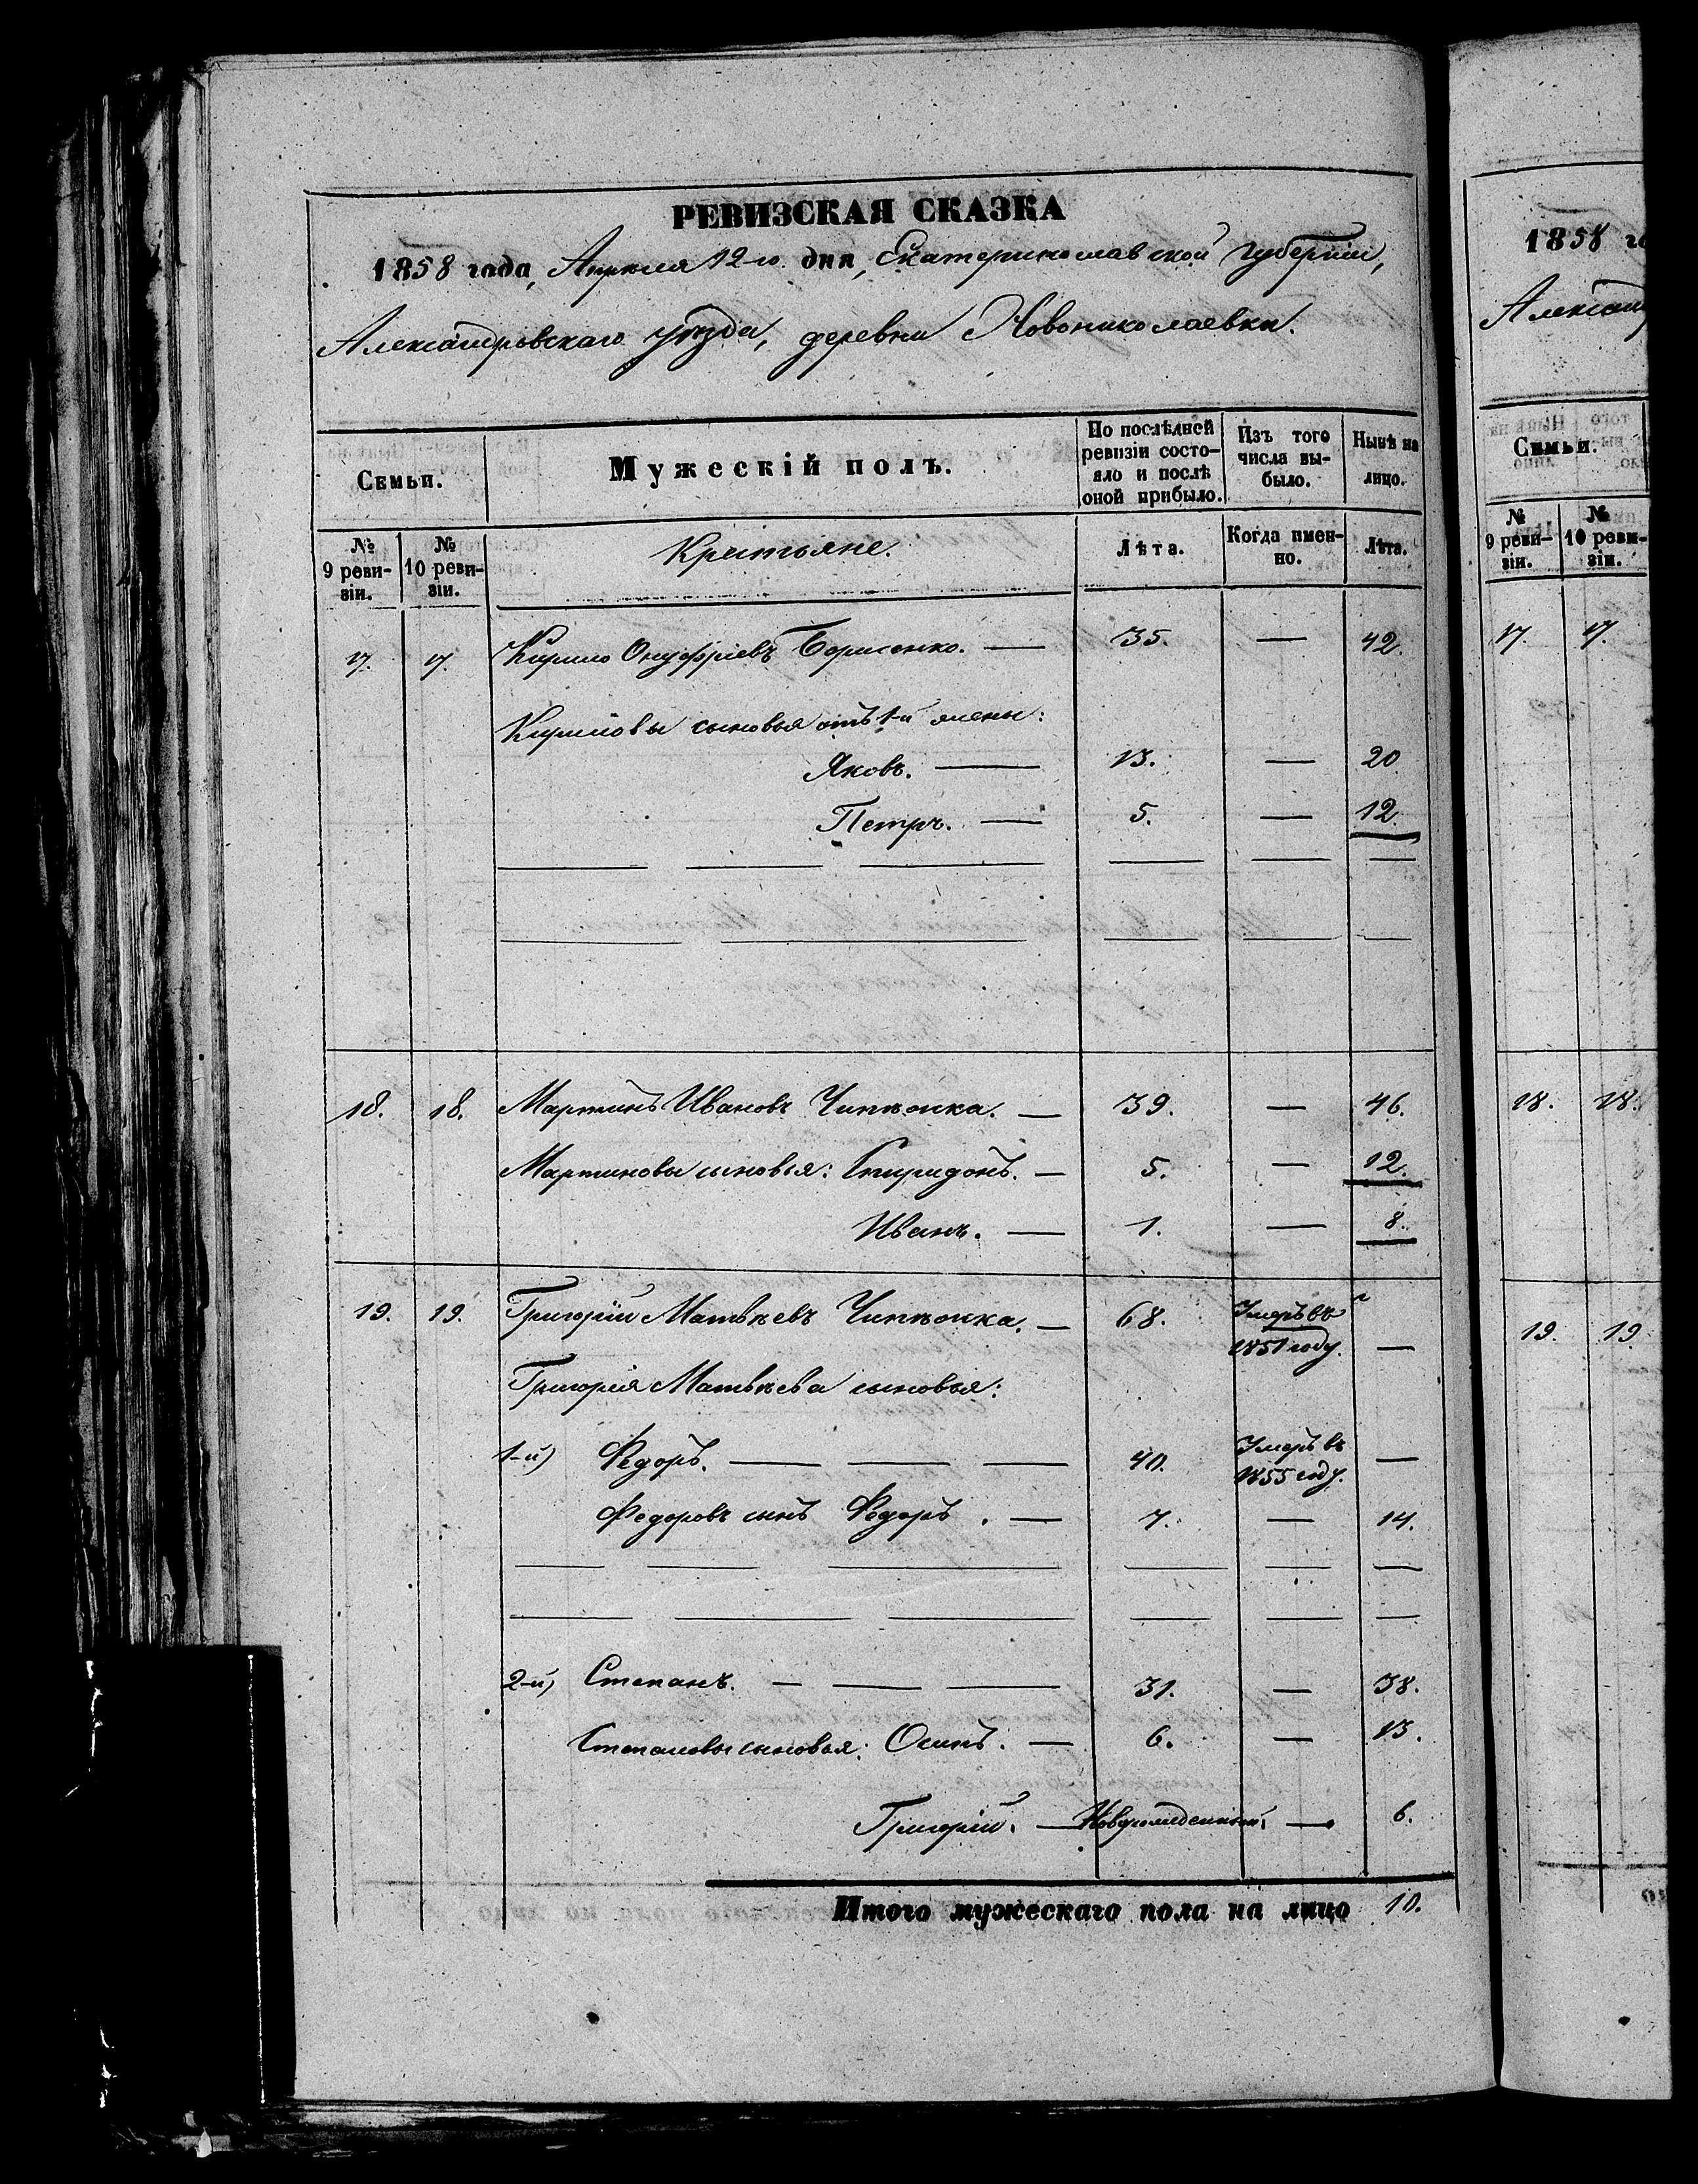 РЕВИЗСКАЯ СКАЗКА
1858 года, Апреля 12-го дня, Екатеринославской губерніи,
Александровскаго уѣзда, деревни Новониколаевки.
Семьи.
Мужескій полъ.
По послѣдней ревизіи состояло и послѣ оной прибыло.
Изъ того числа выбыло.
Нынѣ на лицо.
№ 9 ревизіи.
№ 10 ревизіи.
Крестьяне.
Лѣта.
Когда именно.
Лѣта.
17. 17. Кирило Онуфріевъ Борисенко. — 35. — 42.
Кириловы сыновья отъ 1-й жены:
Яковъ. — 13. — 20
Петръ. — 5. — 12.
18. 18. Мартинъ Ивановъ — 39. — 46.
Мартиновы сыновья: Спиридонъ. — 5. — 12.
Иванъ. — 1. — 8.
19. 19. Григорій Матвѣевъ — 68. Умеръ въ 1851 году. —
Григорія Матвѣева сыновья:
1-й) Федоръ. — 40. Умеръ въ 1855 году. —
Федоровъ сынъ Федоръ. — 7. — 14.
2-й) Степанъ. — 31. — 38.
Степановы сыновья: Осипъ. — 6. — 13.
Григорій. — Новорожденный. — 6.
Итого мужескаго пола на лицо 10.
1858
Семьи.
№ 9 ревизіи.
№ 10 ревизіи.
17. 17.
18. 18.
19. 19.